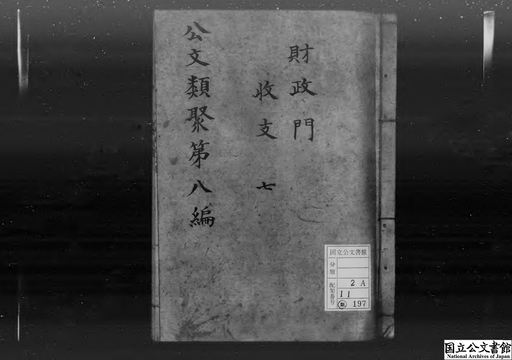 財政門
收支 七
公文類聚第八編
国立公文書館
分類
配架番号
2 A
11
197
国立公文書館
National Archives of Japan